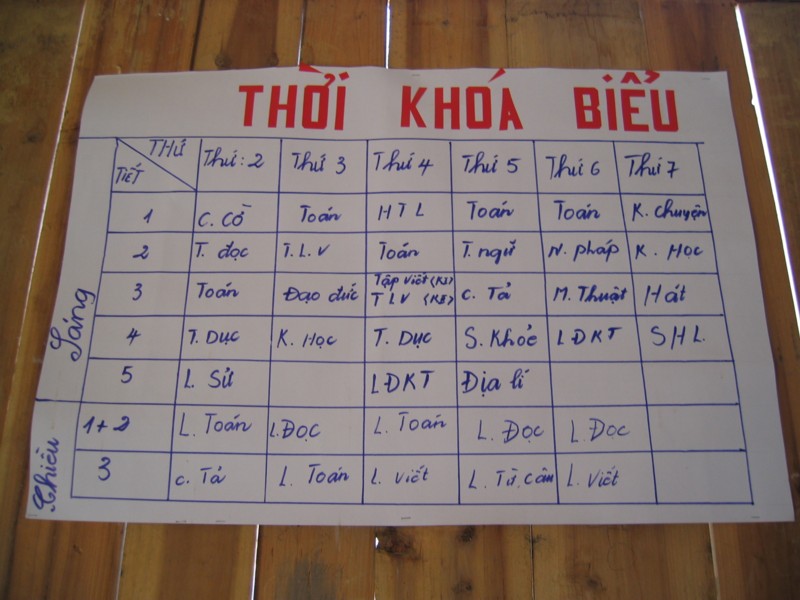 THỜI KHÓA BIỂU
THỨ
TIẾT
Thứ: 2 Thứ 3 Thứ 4 Thứ 5 Thứ 6 Thứ 7
Sáng
1 C. Cờ Toán HTL Toán Toán K. chuyện
2 T. đọc T.L.V Toán T. ngữ N. pháp K. Học
3 Toán Đạo đức Tập viết (KI) C. Tả M. Thuật Hát
TLV (KII)
4 T. Dục K. Học T. Dục S. Khỏe LĐKT SHL.
5 L. Sử LĐKT Địa lí
Chiều
1+2 L. Toán L.ĐỌC L. Toán L. Đọc L. Đọc
3 C. Tả L. Toán L. Viết L. Từ. Câu L. Viết